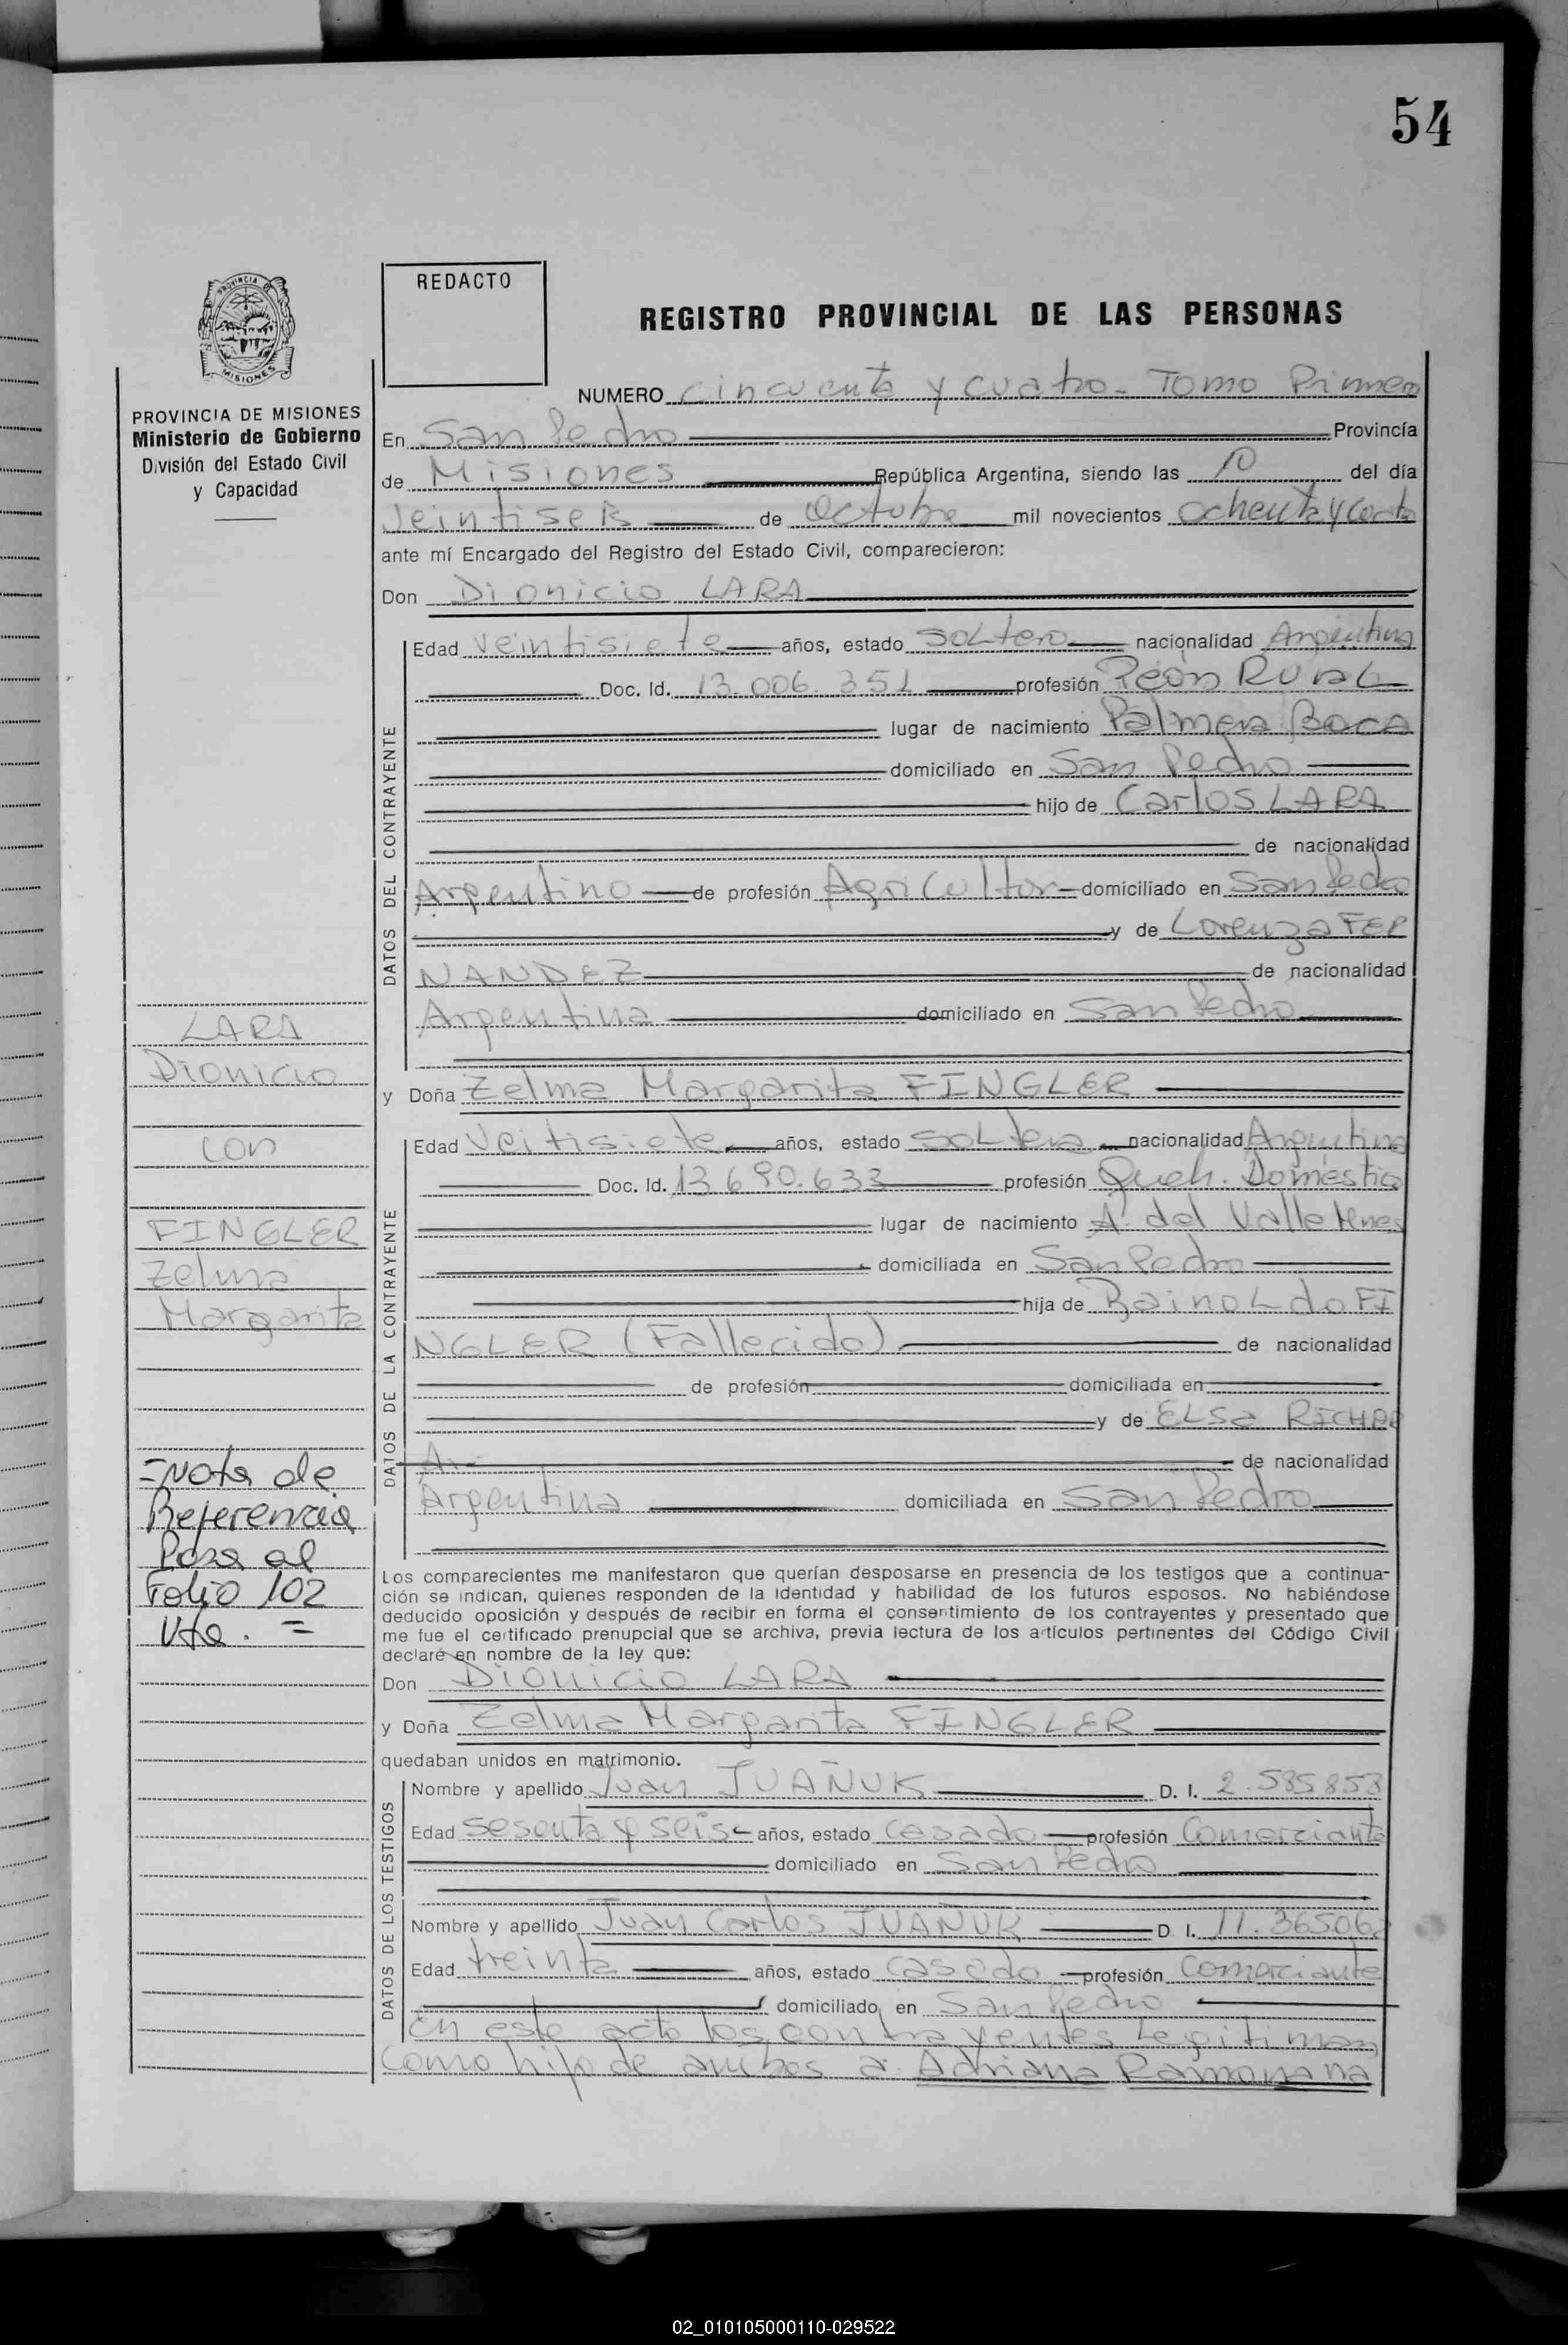 54
REDACTO
REGISTRO PROVINCIAL DE LAS PERSONAS
PROVINCIA DE MISIONES
Ministerio de Gobierno
División del Estado Civil
y Capacidad
NUMERO cincuenta y cuatro - Tomo Primero
En San Pedro Provincía
de Misiones República Argentina, siendo las 10 del día
Veintiseis de Octubre mil novecientos ochenta y
ante mí Encargado del Registro del Estado Civil, comparecieron:
Don Dionicio LARA
DATOS DEL CONTRAYENTE
Edad veintisiete años, estado soltero nacionalidad Argentina
Doc. Id. 13.006.351 profesión Peón Rural
lugar de nacimiento Palmera Boca
domiciliado en San Pedro
hijo de Carlos LARA
de nacionalidad
Argentino de profesión Agricultor domiciliado en San Pedro
y de Lorenza FER
NANDEZ de nacionalidad
Argentina domiciliado en San Pedro
y Doña Zelma Margarita FINGLER
DATOS DE LA CONTRAYENTE
Edad Veitisiete años, estado soltera nacionalidad Argentina
Doc. Id. 13.690.633 profesión Queh. Doméstico
lugar de nacimiento A. del Valle Mnes
domiciliada en San Pedro
hija de Rainoldo FI
NGLER (Fallecido) de nacionalidad
de profesión domiciliada en
y de Elsa
de nacionalidad
Argentina domiciliada en San Pedro
Los comparecientes me manifestaron que querían desposarse en presencia de los testigos que a continua-
ción se indican, quienes responden de la identidad y habilidad de los futuros esposos. No habiéndose
deducido oposición y después de recibir en forma el consentimiento de los contrayentes y presentado que
me fue el certificado prenupcial que se archiva, previa lectura de los artículos pertinentes del Código Civil
declaré en nombre de la ley que:
Don Dionicio LARA
y Doña Zelma Margarita FINGLER
quedaban unidos en matrimonio.
DATOS DE LOS TESTIGOS
Nombre y apellido Juan IUAÑUK D. I. 2.585.853
Edad sesenta y seis años, estado casado profesión Comerciante
domiciliado en San Pedro
Nombre y apellido Juan Carlos IUAÑUK D. I. 11.365.062
Edad treinta años, estado casado profesión Comerciante
domiciliado en San Pedro
En este acto los contrayentes legitiman
como hijo de ambos a Adriana
LARA
Dionicio
con
FINGLER
Zelma
Margarita
=Nota de
Referencia
Pasa al
Folio 102
Vta. =
02_010105000110-029522